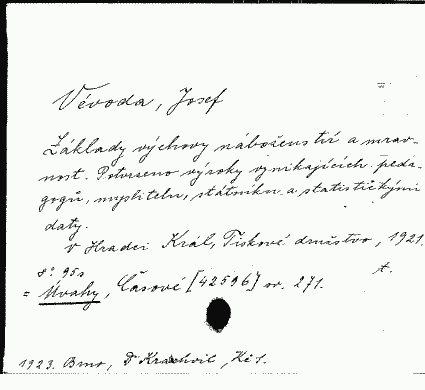 Vévoda, Josef
Základy výchovy náboženství a mrav-
nost. Potvrzeno výroky vynikajících peda-
gogů, myslitelů, státníků a statistickými
daty.
V Hradci Král, Tiskové družstvo, 1921.
8°. 95s
= Úvahy, Časové [42596] sv. 271.
1923. Brno, Dr Krachvil, Kčs.